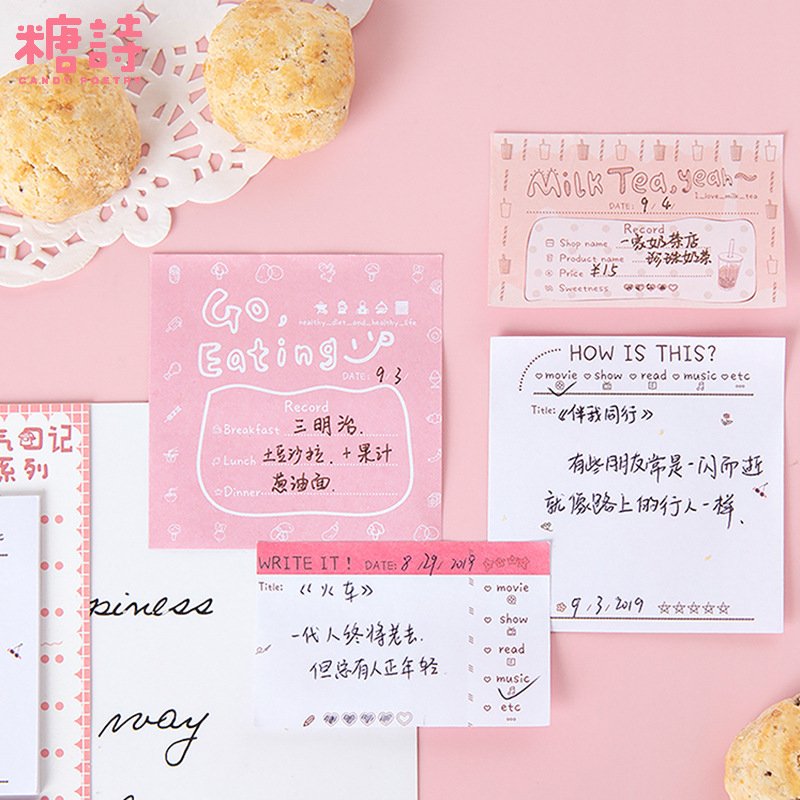 糖詩
CANDY POETRY
Milk Tea, yeah~
I_love_milk_tea
DATE: 9/4/
Record
Shop name 一家奶茶店
Product name 珍珠奶茶
Price ¥15
Sweetness
Go,
healthy_diet_and_healthy_life
Eating
DATE: 9/3/
Record
Breakfast 三明治.
Lunch 土豆沙拉. + 果汁
Dinner 葱油面.
HOW IS THIS?
movie show read music etc
Title: 《伴我同行》
有些朋友常是一闪而逝
就像路上的行人一样.
9/3/2019
气日记
系列
WRITE IT! DATE: 8/29/2019
Title: 《火车》
一代人终将老去.
但总有人正年轻.
movie
show
read
music
etc
piness
way